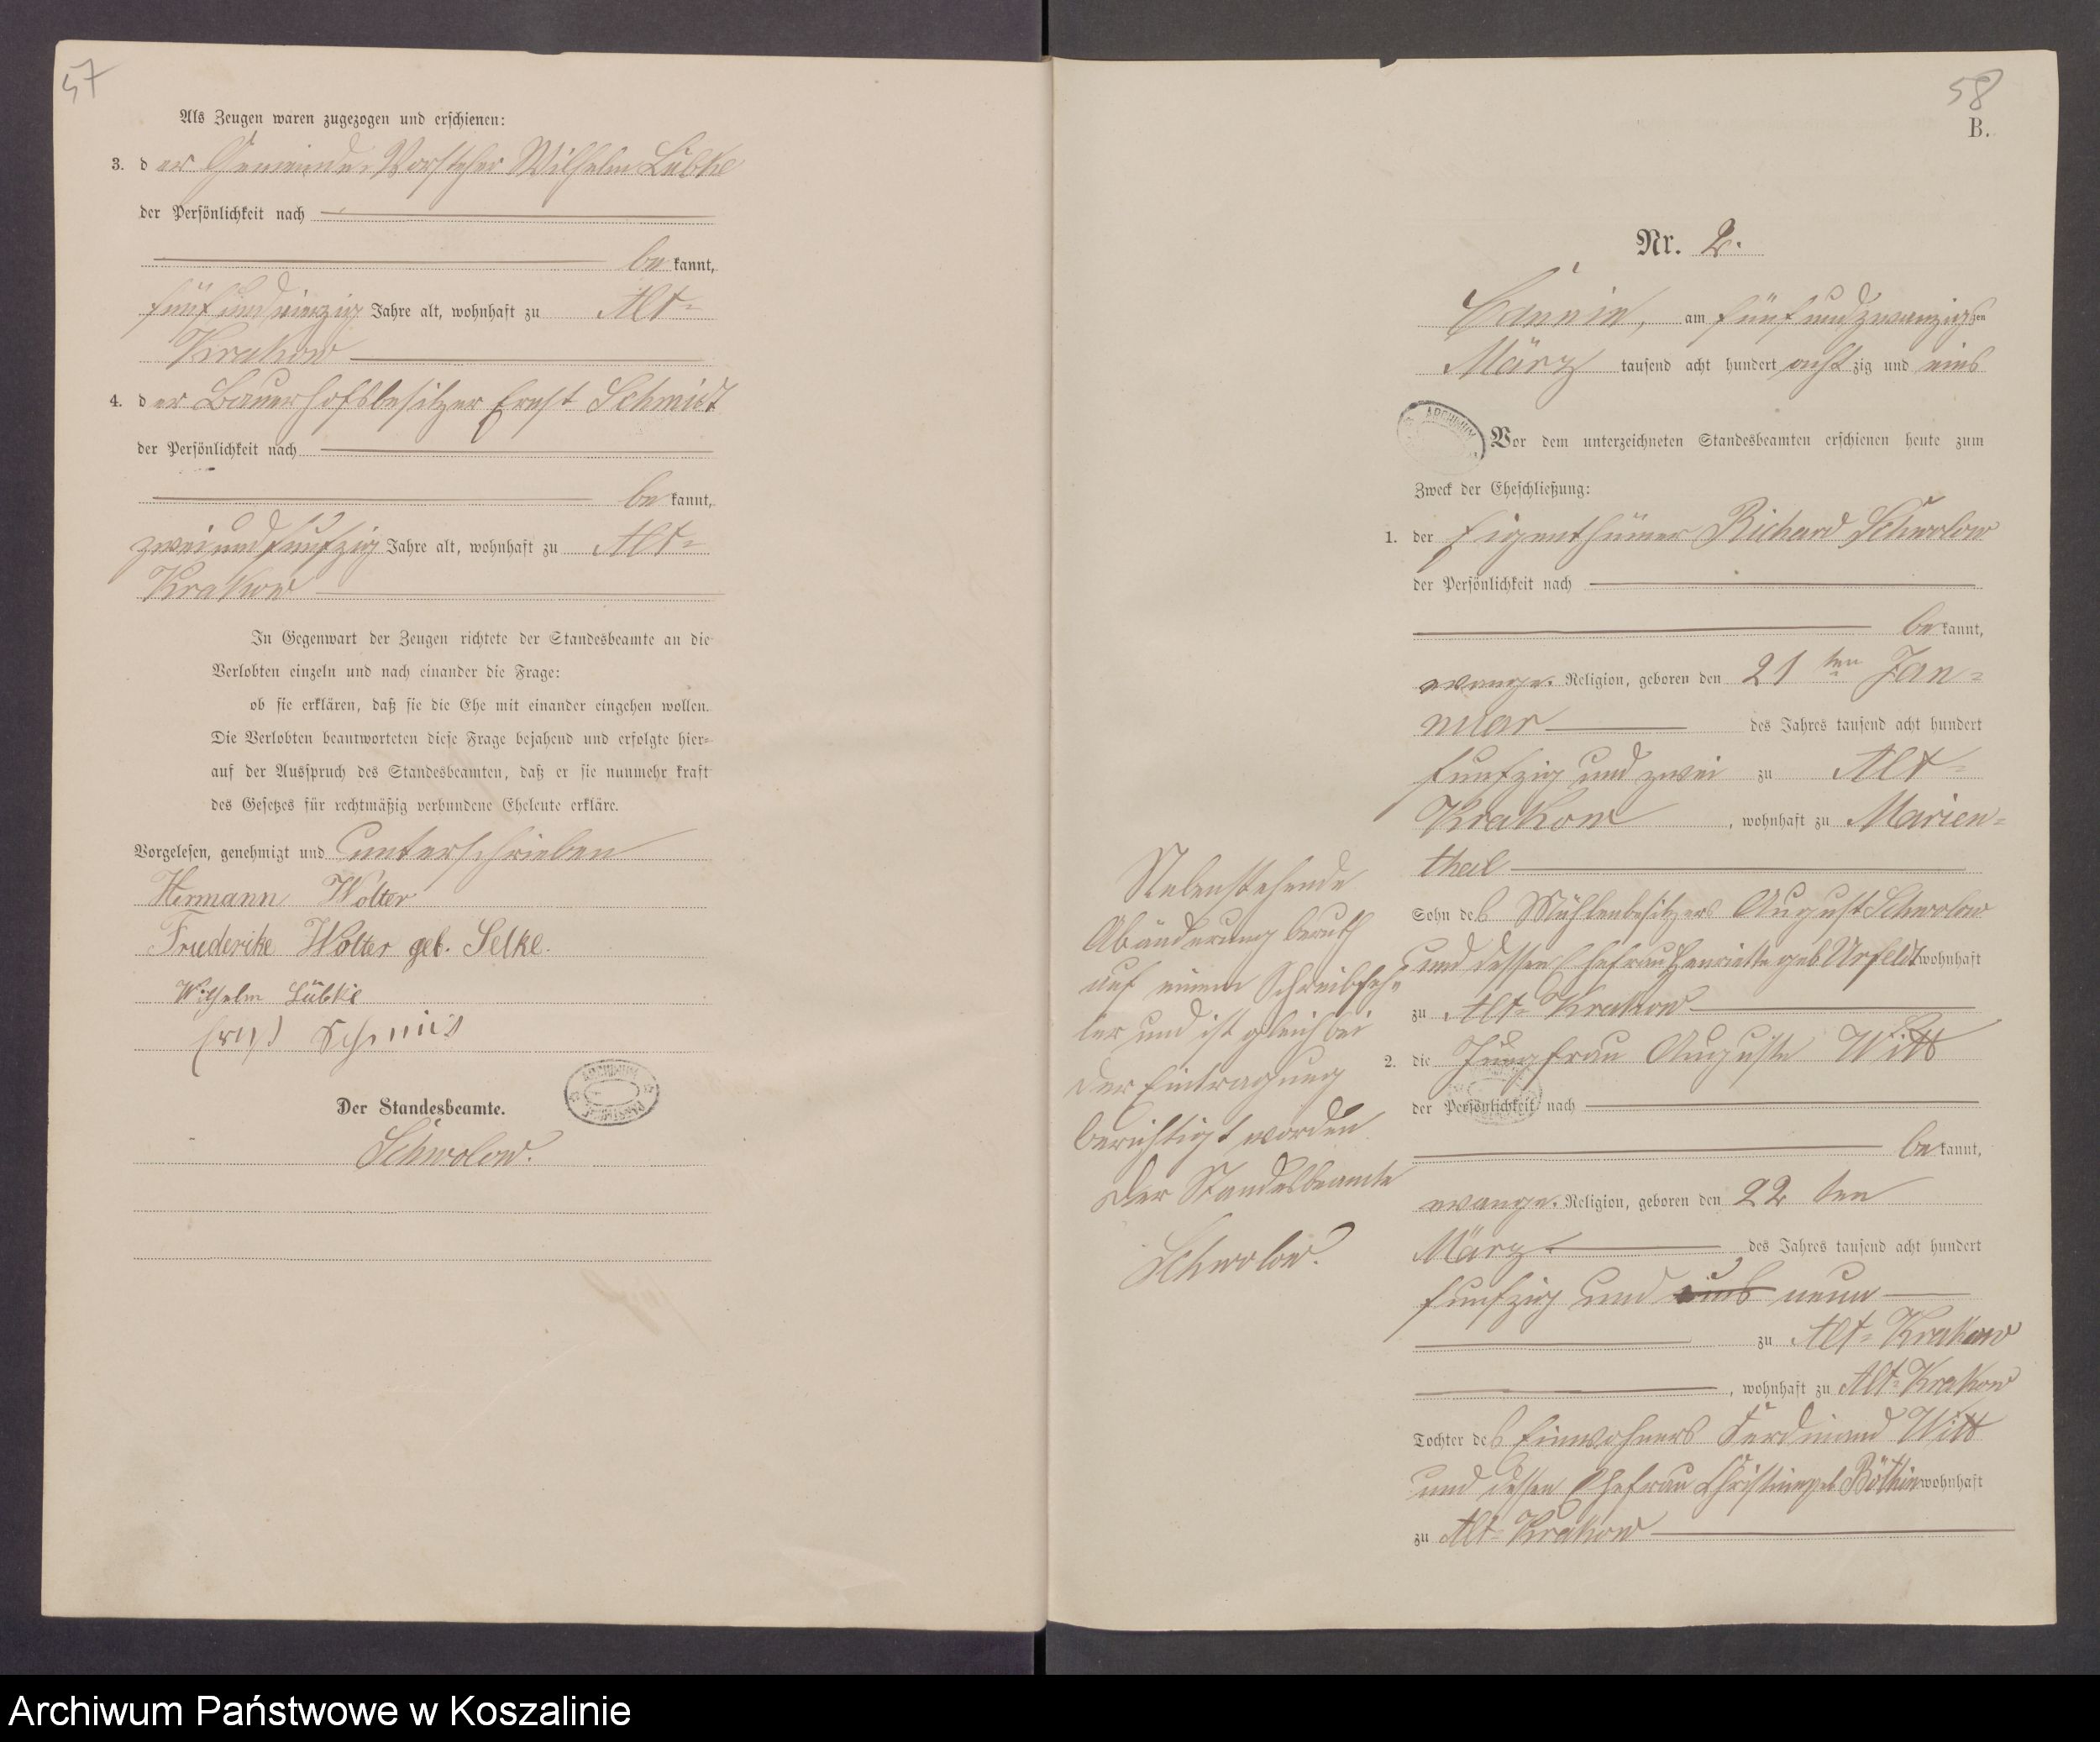 57
Als Zeugen waren zugezogen und erschienen:
3. der Gemeinde-Vorsteher Wilhelm Lübke
der Persönlichkeit nach
bekannt,
fünfundvierzig Jahre alt, wohnhaft zu Alt-
Krakow
4. der Bauerhofsbesitzer Ernst Schmidt
der Persönlichkeit nach
bekannt,
zweiundfunfzig Jahre alt, wohnhaft zu Alt-
Krakow
In Gegenwart der Zeugen richtete der Standesbeamte an die
Verlobten einzeln und nach einander die Frage:
ob sie erklären, daß sie die Ehe mit einander eingehen wollen.
Die Verlobten beantworteten diese Frage bejahend und erfolgte hier-
auf der Ausspruch des Standesbeamten, daß er sie nunmehr kraft
des Gesetzes für rechtmäßig verbundene Eheleute erkläre.
Vorgelesen, genehmigt und unterschrieben
Hermann Wolter
Friederike Wolter geb. Selke.
Wilhelm Lübke
Der Standesbeamte.
Schwolow.
58
B.
Nr. 2.
Cannin, am fünfundzwanzigsten
März tausend acht hundert achtzig und eins
Vor dem unterzeichneten Standesbeamten erschienen heute zum
Zweck der Eheschließung:
1. der Eigenthümer Richard Schwolow
der Persönlichkeit nach
bekannt,
evange. Religion, geboren den 21 ten Jan-
nuar des Jahres tausend acht hundert
funfzig und zwei zu Alt-
Krakow, wohnhaft zu Marien-
thal
Sohn des Mühlenbesitzers August Schwolow
und dessen Ehefrau Henriette geb Urfeldt wohnhaft
zu Alt-Krakow
2. die Jungfrau Auguste Witt
der Persönlichkeit nach
bekannt,
evange. Religion, geboren den 22 ten
März des Jahres tausend acht hundert
funfzig und eins neun
zu Alt-Krakow
, wohnhaft zu Alt-Krakow
Tochter des Einwohners Ferdinand Witt
und dessen Ehefrau Christine geb Böttin wohnhaft
zu Alt-Krakow
Nebenstehende
Abänderung beruth
auf einem Schreibfeh-
ler und ist gleich bei
der Eintragung
berichtigt worden
Der Standesbeamte
Schwolow.
ARCHIWUM
Archiwum Państwowe w Koszalinie